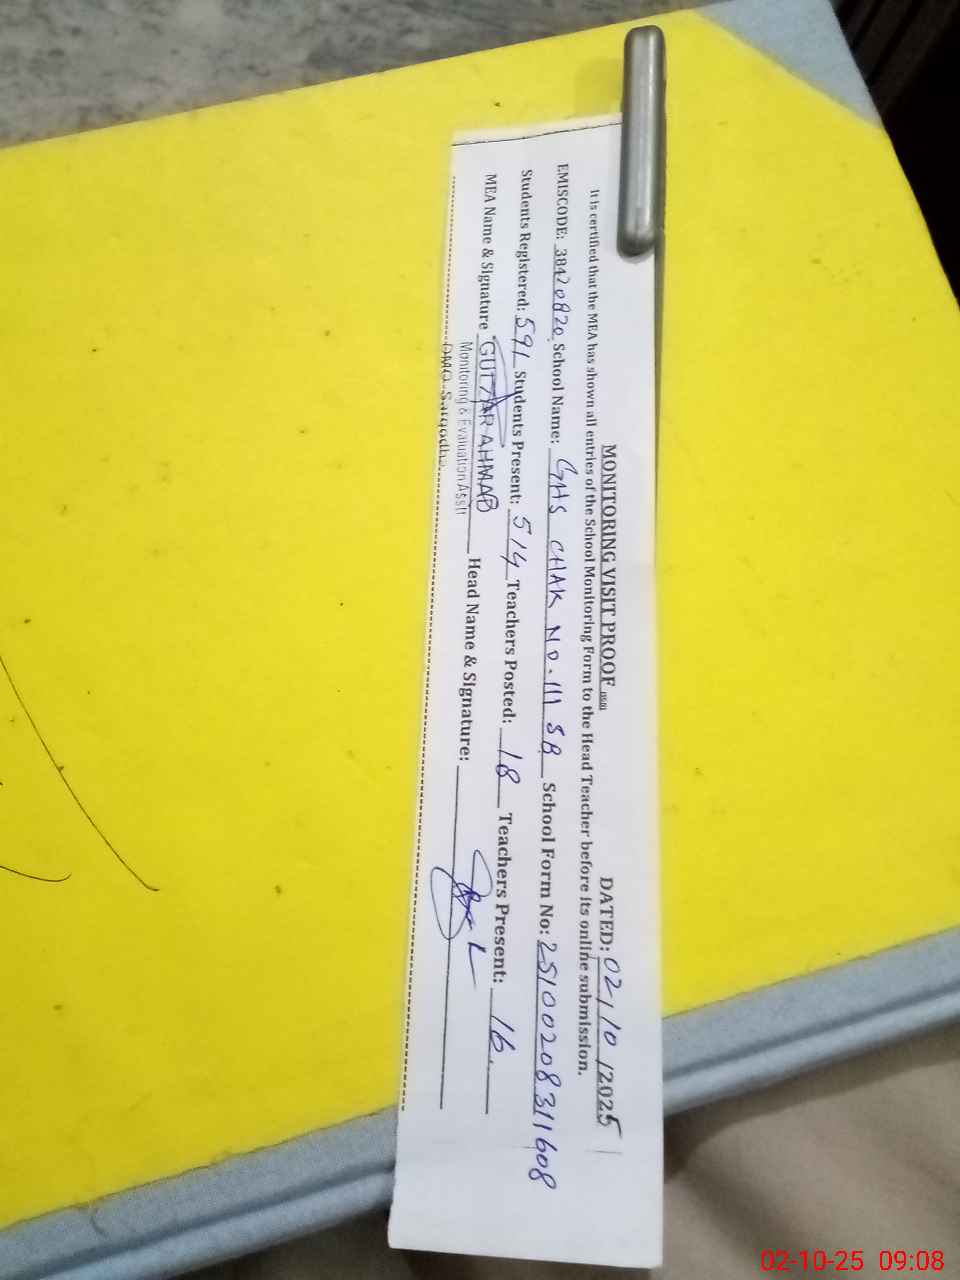 MONITORING VISIT PROOF DATED: 02/10/2025
It is certified that the MEA has shown all entries of the School Monitoring Form to the Head Teacher before its online submission.
EMISCODE: 38420820 School Name: GHS CHAK NO. 111 SB School Form No: 25100208311608
Students Registered: 591 Students Present: 514 Teachers Posted: 18 Teachers Present: 16
MEA Name & Signature GULZAR AHMAD Head Name & Signature:
Monitoring & Evaluation Asstt
DMO Sargodha
02-10-25 09:08